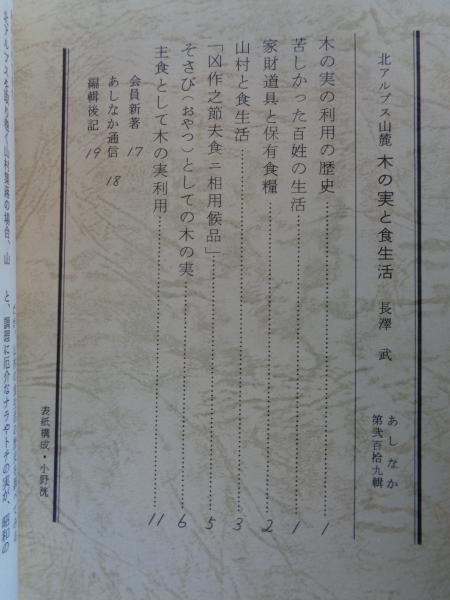 あしなか
第弐百拾九輯
北アルプス山麓 木の実と食生活 長澤 武
木の実の利用の歴史 1
苦しかった百姓の生活 1
家財道具と保有食糧 2
山村と食生活 3
「凶作之節夫食ニ相用候品」 5
そさび(おやつ)としての木の実 6
主食として木の実利用 11
会員新著 17
あしなか通信 18
編輯後記 19
表紙構成・小野洸
と、調理に厄介なナラやトチの実が、昭和の
北アルプスを取り巻く山村集落の場合、山